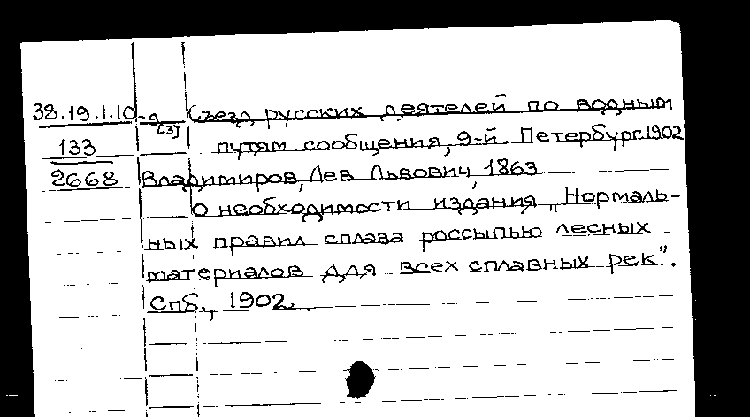 38.19.1.10-9 Съезд русских деятелей по водным
[3]
133 путям сообщения, 9-й. Петербург. 1902
2668 Владимиров, Лев Львович, 1863
О необходимости издания „Нормаль-
ных правил сплава россыпью лесных
материалов для всех сплавных рек”.
СПб., 1902.